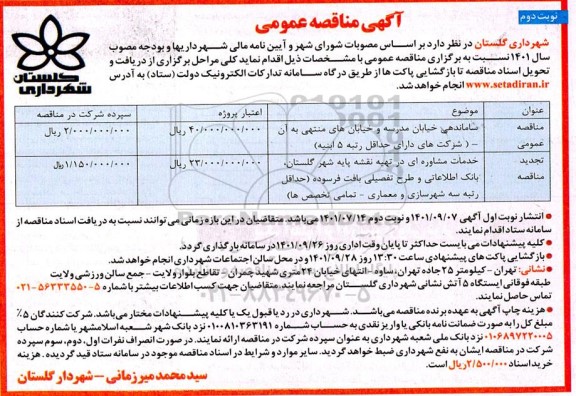 نوبت دوم
آگهی مناقصه عمومی
شهرداری گلستان در نظر دارد بر اساس مصوبات شورای شهر و آیین نامه مالی شهرداریها و بودجه مصوب
سال ۱۴۰۱ نسبت به برگزاری مناقصه عمومی با مشخصات ذیل اقدام نماید کلی مراحل برگزاری از دریافت و
تحویل اسناد مناقصه تا بازگشایی پاکت ها از طریق درگاه سامانه تدارکات الکترونیک دولت (ستاد) به آدرس
www.setadiran.ir انجام خواهد شد.
گلستان
شهرداری
عنوان موضوع اعتبار پروژه سپرده شرکت در مناقصه
مناقصه عمومی ساماندهی خیابان مدرسه و خیابان های منتهی به آن ۴۰/۰۰۰/۰۰۰/۰۰۰ ریال ۲/۰۰۰/۰۰۰/۰۰۰ ریال
– ( شرکت های دارای حداقل رتبه ۵ ابنیه)
تجدید مناقصه خدمات مشاوره ای در تهیه نقشه پایه شهر گلستان، ۲۳/۰۰۰/۰۰۰/۰۰۰ ریال ۱/۱۵۰/۰۰۰/۰۰۰ ریال
بانک اطلاعاتی و طرح تفصیلی بافت فرسوده (حداقل
رتبه سه شهرسازی و معماری - تمامی تخصص ها)
● انتشار نوبت اول آگهی ۱۴۰۱/۰۹/۰۷ و نوبت دوم ۱۴۰۱/۰۷/۱۴ می باشد. متقاضیان در این بازه زمانی می توانند نسبت به دریافت اسناد مناقصه از
سامانه ستاد اقدام نمایند.
● کلیه پیشنهادات می بایست حداکثر تا پایان وقت اداری روز ۱۴۰۱/۰۹/۲۶ در سامانه بارگذاری گردد.
● بازگشایی پاکت های پیشنهادی ساعت ۱۳:۳۰ روز ۱۴۰۱/۰۹/۲۸ و در محل سالن اجتماعات شهرداری انجام خواهد شد.
● نشانی: تهران - کیلومتر ۲۵ جاده تهران، ساوه - انتهای خیابان ۲۴ متری شهید چمران - تقاطع بلوار ولایت - جمع سالن ورزشی ولایت
طبقه فوقانی ایستگاه ۵ آتش نشانی شهرداری گلستان مراجعه نمایند. متقاضیان جهت کسب اطلاعات بیشتر با شماره ۵-۵۶۳۳۳۵۵۰-۰۲۱
تماس حاصل نمایند.
● هزینه چاپ آگهی به عهده برنده مناقصه می باشد. شهرداری در رد یا قبول یک یا کلیه پیشنهادات مختار می باشد. شرکت کنندگان ۵٪
مبلغ کل را به صورت ضمانت نامه بانکی یا واریز نقدی به حساب شماره ۱۰۰۸۱۰۳۶۳۱۹۱ نزد بانک شهر شعبه اسلامشهر یا شماره حساب
۰۱۰۶۸۹۷۲۲۰۰۵ نزد بانک ملی شعبه شهرداری به عنوان سپرده شرکت در مناقصه ارائه نمایند. در صورت انصراف نفرات اول، دوم، سوم سپرده
شرکت در مناقصه ایشان به نفع شهرداری ضبط خواهد گردید. سایر موارد و شرایط در اسناد مناقصه موجود در سامانه ستاد قید گردیده . هزینه
خرید اسناد ۲/۵۰۰/۰۰۰ ریال است.
سید محمد میرزمانی - شهردار گلستان
۰۲۱-۸۸۳۴۹۶۷۰-۵